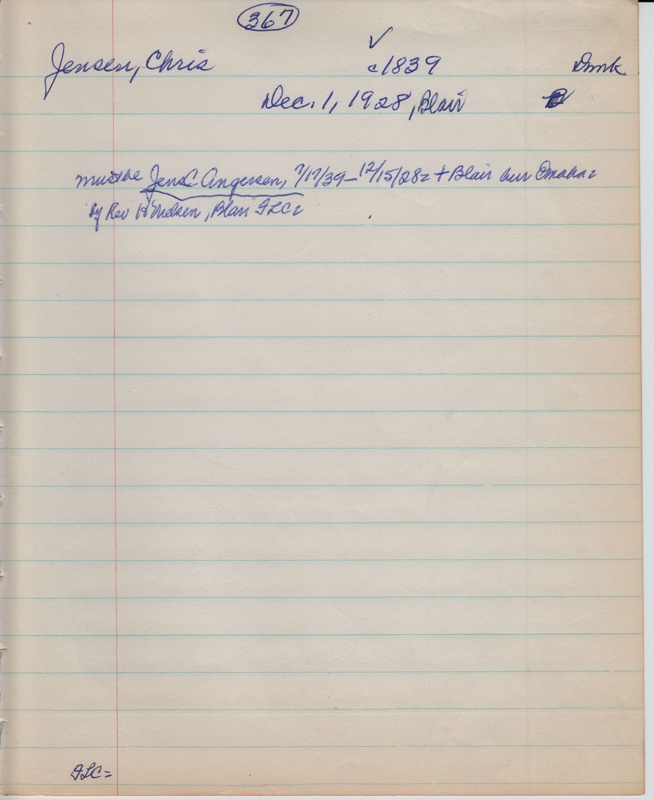 367
Jensen, Chris ✓ c1839 Dmrk
Dec. 1, 1928, Blair
must be Jens C Angersen, 7/17/39–12/15/28= + Blair bur Omaha=
by Rev H Nielsen, Blair FLC=
FLC=